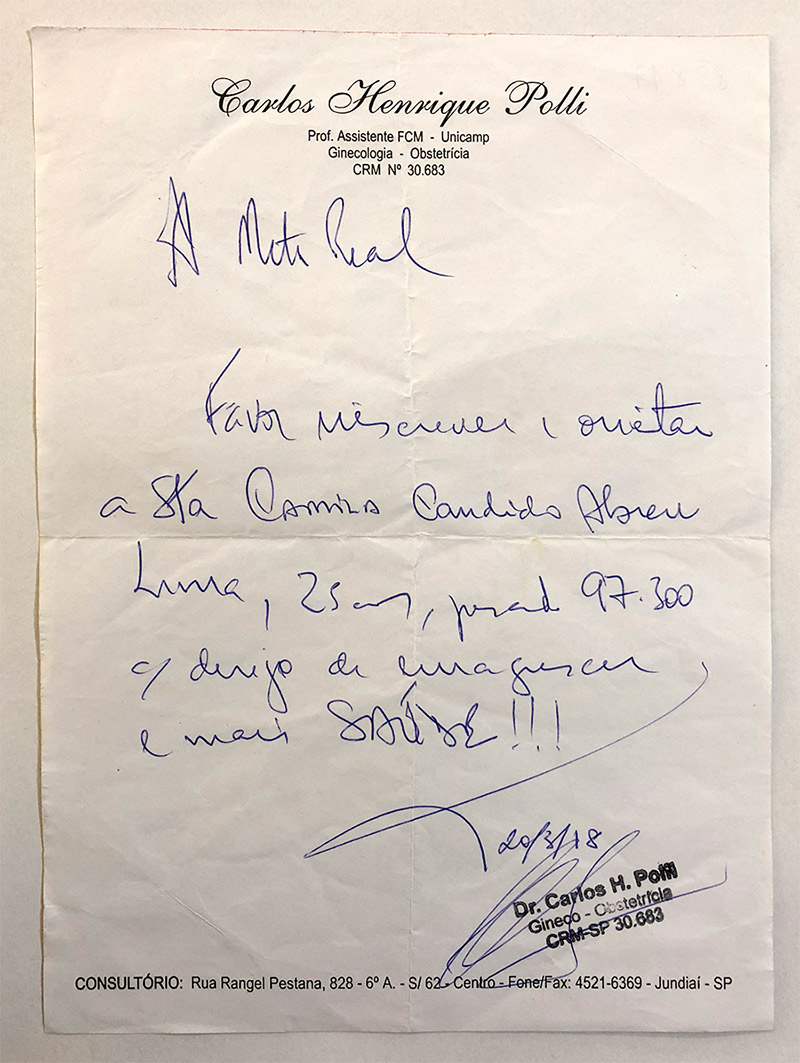 Carlos Henrique Polli
Prof. Assistente FCM - Unicamp
Ginecologia - Obstetrícia
CRM Nº 30.683
A Meta Real
Favor inscrever e orientar
a Sta Camila Candido Abreu
Lima, 25 anos, pesando 97.300
c/ desejo de emagrecer
e mais SAÚDE!!!
20/3/18
Dr. Carlos H. Polli
Gineco - Obstetrícia
CRM-SP 30.683
CONSULTÓRIO: Rua Rangel Pestana, 828 - 6º A. - S/ 62 - Centro - Fone/Fax: 4521-6369 - Jundiaí - SP